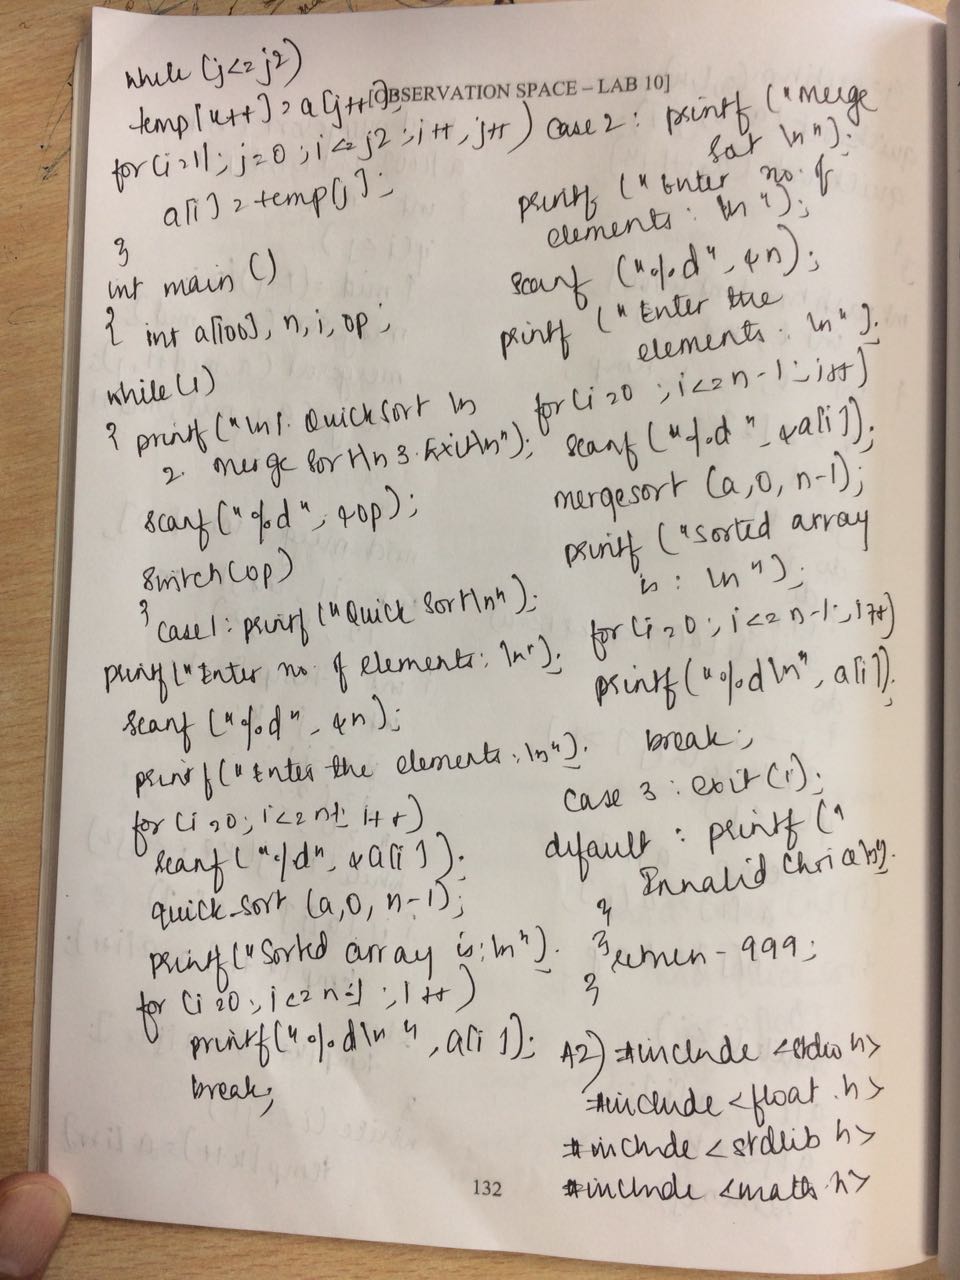 [OBSERVATION SPACE – LAB 10]
while (j<=j2)
temp[k++] = a[j++];
for(i=i1; j=0; i<=j2; i++, j++)
a[i] = temp[j];
}
int main ()
{ int a[100], n, i, op;
while (1)
{ printf("\n1. QuickSort \n
2. Merge Sort\n 3. Exit\n");
scanf("%d", &op);
switch(op)
{ case1: printf("Quick Sort\n");
printf("Enter no. of elements: \n");
scanf ("%d", &n);
printf("Enter the elements: \n");
for (i=0; i<=n-1; i++)
scanf("%d", &a[i]);
quick_sort (a,0, n-1);
printf("Sorted array is: \n");
for (i=0; i<=n-1; i++)
printf("%d\n", a[i]);
break;
Case 2: printf ("Merge
Sort \n");
printf ("Enter no. of
elements: \n");
scanf ("%d", &n);
printf ("Enter the
elements: \n");
for(i=0; i<=n-1; i++)
scanf ("%d", &a[i]);
mergesort (a,0, n-1);
printf ("Sorted array
is: \n");
for (i=0; i<=n-1; i++)
printf("%d\n", a[i]);
break;
Case 3: exit(1);
default: printf ("
Invalid \n");
}
} return -999;
}
A2) #include <stdio.h>
#include <float.h>
#include <stdlib.h>
#include <math.h>
132